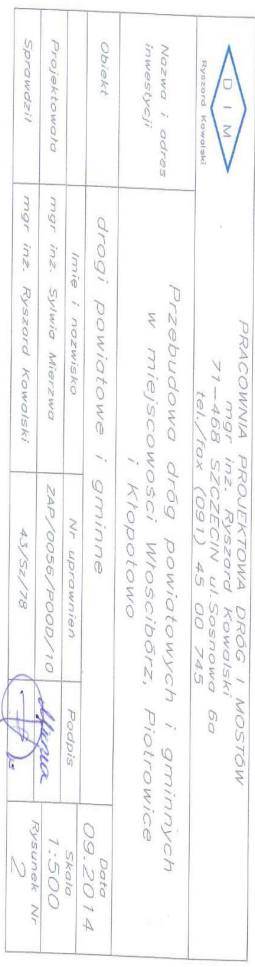 D I M
Ryszard Kowalski
PRACOWNIA PROJEKTOWA DRÓG I MOSTÓW
mgr inż. Ryszard Kowalski
71-468 SZCZECIN ul.Sosnowa 6a
tel./fax (091) 45 00 745
Nazwa i adres
inwestycji
Przebudowa dróg powiatowych i gminnych
w miejscowości Włościbórz, Piotrowice
i Kłopotowo
Obiekt
drogi powiatowe i gminne
Data
09.2014
Imię i nazwisko
Nr uprawnień
Podpis
Skala
1:500
Projektowała
mgr inż. Sylwia Mierzwa
ZAP/0056/POOD/10
Rysunek Nr
2
Sprawdził
mgr inż. Ryszard Kowalski
43/Sz/78